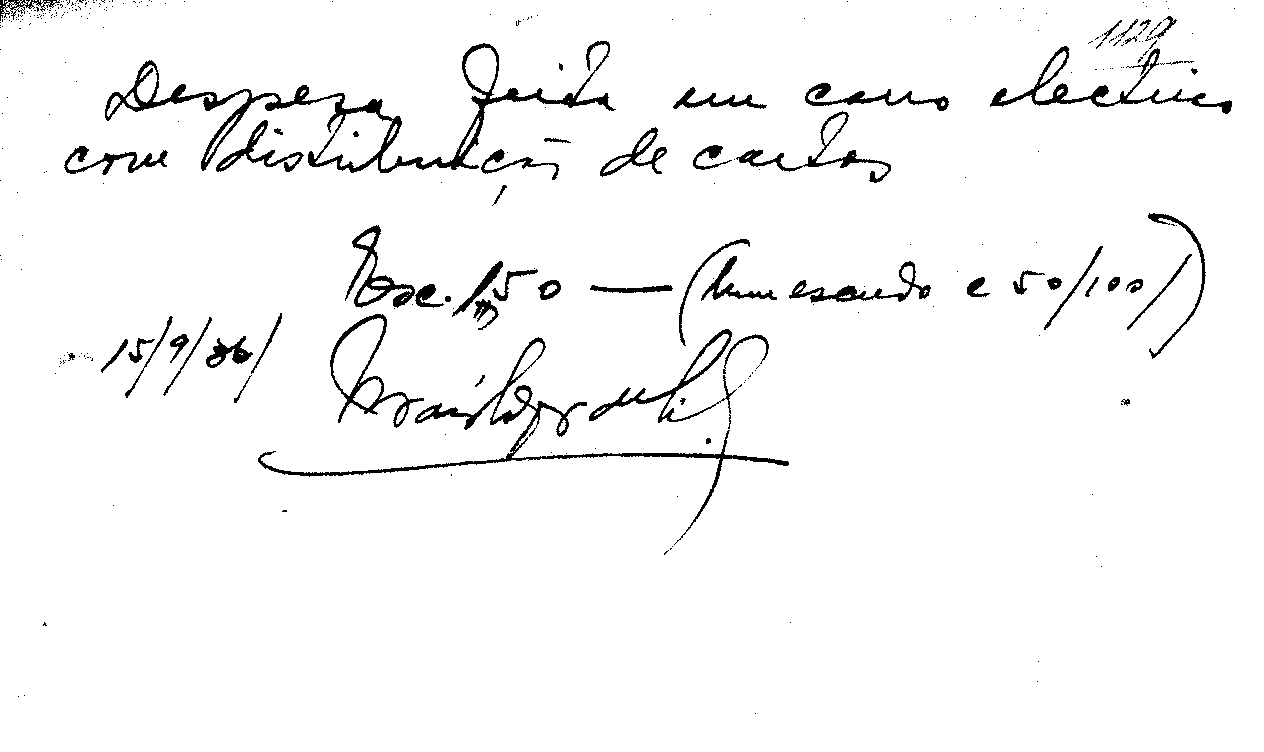 1129
Despesa feita em carro electrico
com distribuição de cartas
Esc. 1$50 — (hum escudo e 50/100/)
15/9/36/